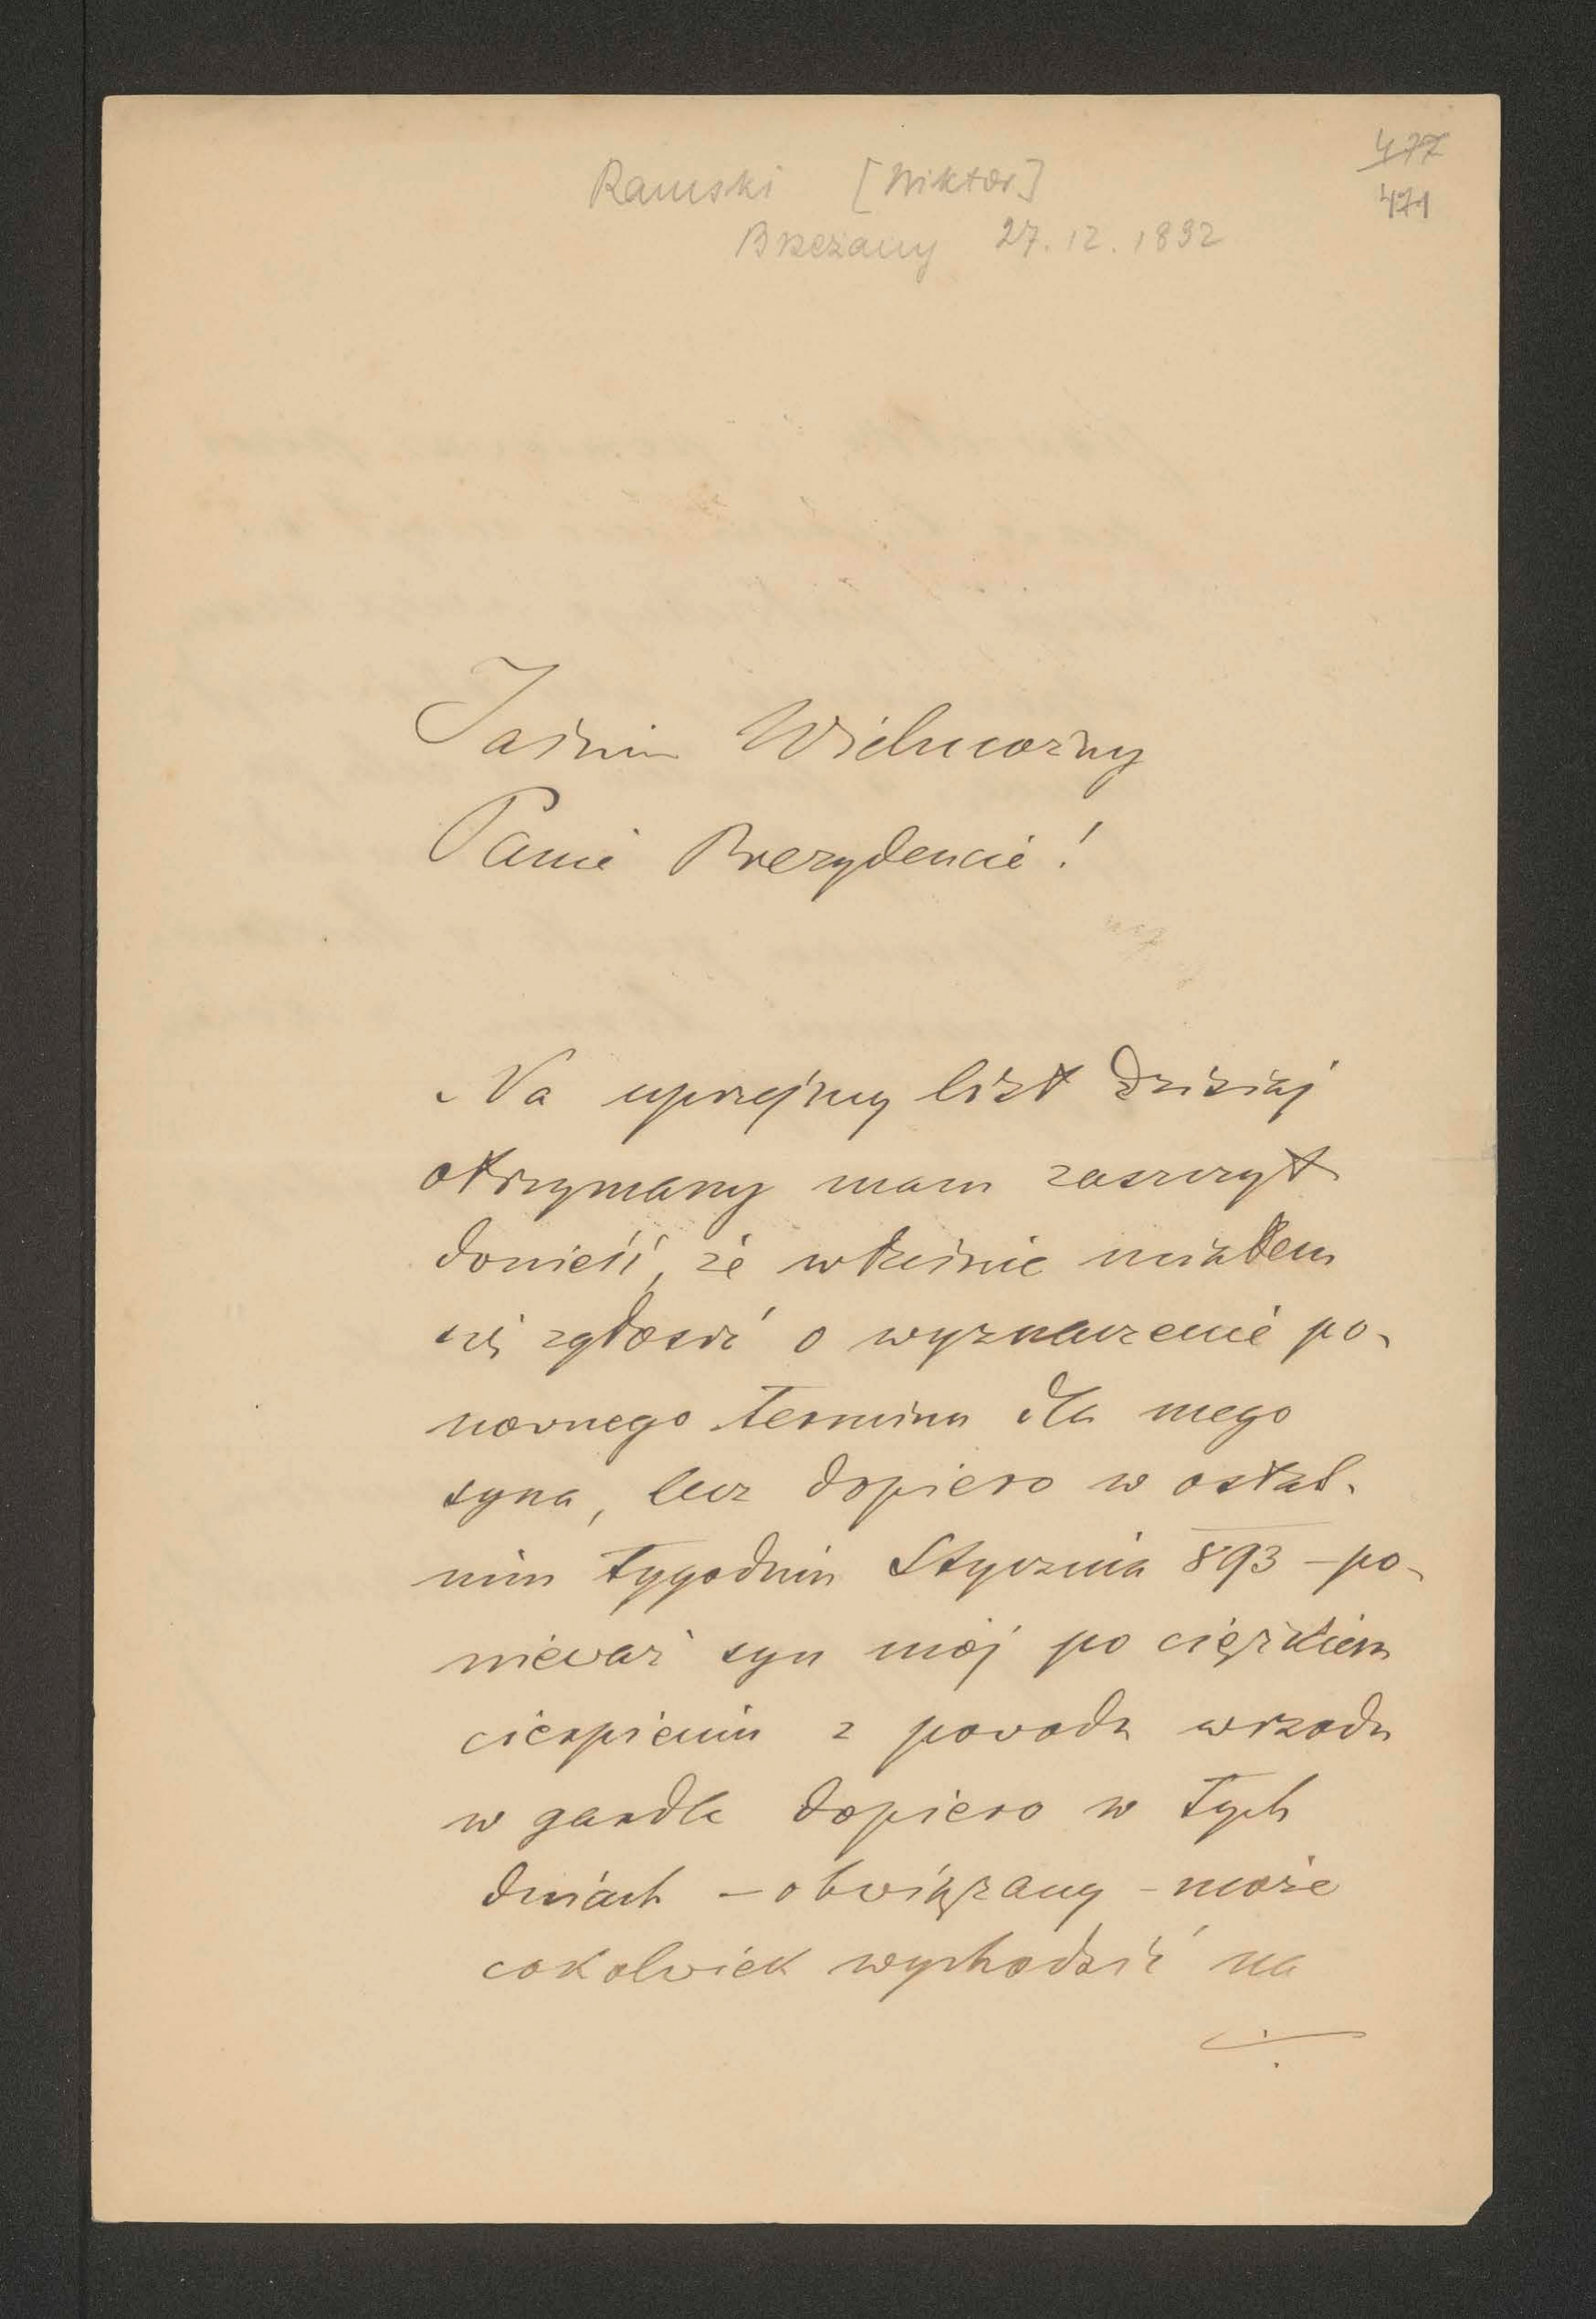 477
471
Ramski [Wiktor]
Brzeżany 27.12.1892
Jaśnie Wielmożny
Panie Prezydencie!
Na uprzejmy list dzisiaj
otrzymany mam zaszczyt
donieść, że właśnie miałem
się zgłosić o wyznaczenie po-
nownego terminu dla mego
syna, lecz dopiero w ostat-
nim tygodniu Stycznia 893 – po-
nieważ syn mój po ciężkiem
cierpieniu z powodu wrzodu
w gardle dopiero w tych
dniach – obwiązany – może
cokolwiek wychodzić na